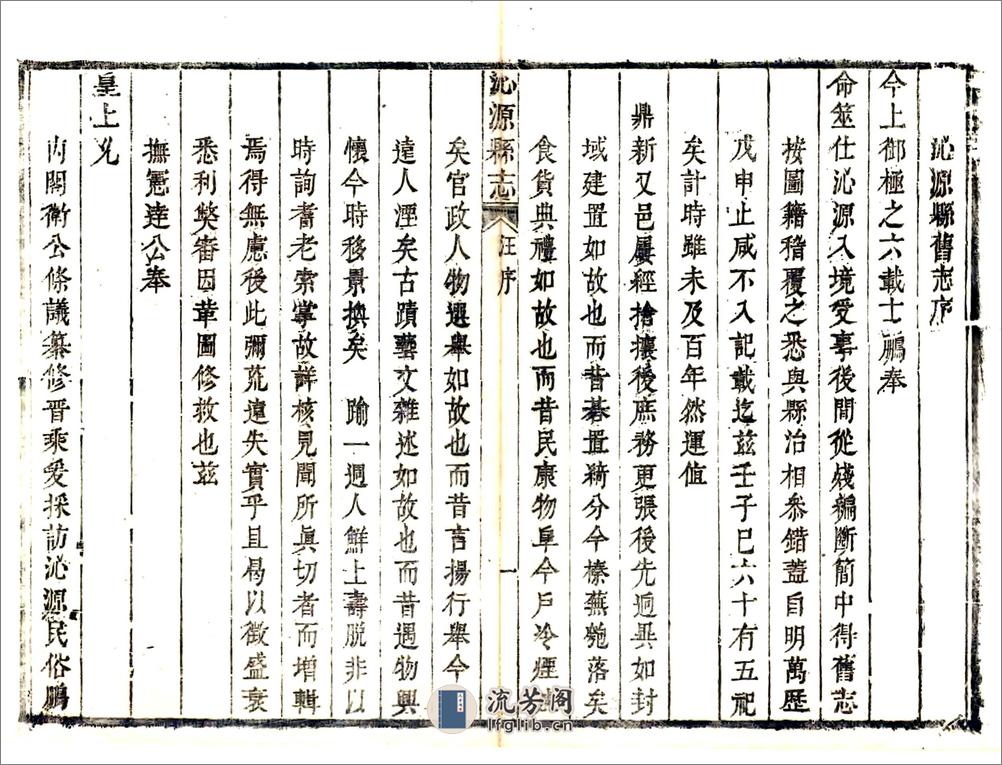 沁源縣舊志序
今上御極之六載士鵬奉
命筮仕沁源入境受事後間從殘編斷簡中得舊志
按圖籍稽覆之悉與縣治相叅錯蓋自明萬歷
戊申止咸不入記載迄兹壬子已六十有五祀
矣計時雖未及百年然運值
鼎新又邑屢經搶攘後庶務更張後先逈異如封
域建置如故也而昔碁置綺分今榛蕪匏落矣
食貨典禮如故也而昔民康物阜今戶冷煙
沁源縣志 汪序 一
矣官政人物選舉如故也而昔言揚行舉今
達人湮矣古蹟藝文雜述如故也而昔遇物興
懷今時移景換矣 踰一週人鮮上壽脫非以
時詢耆老索掌故詳核見聞所真切者而增輯
焉得無慮後此彌荒遠失實乎且曷以徵盛衰
悉利獘審因革圖修救也兹
撫憲達公奉
皇上允
内閣衛公條議纂修晋乘爰採訪沁源民俗鵬
流芳阁
lfglib.cn